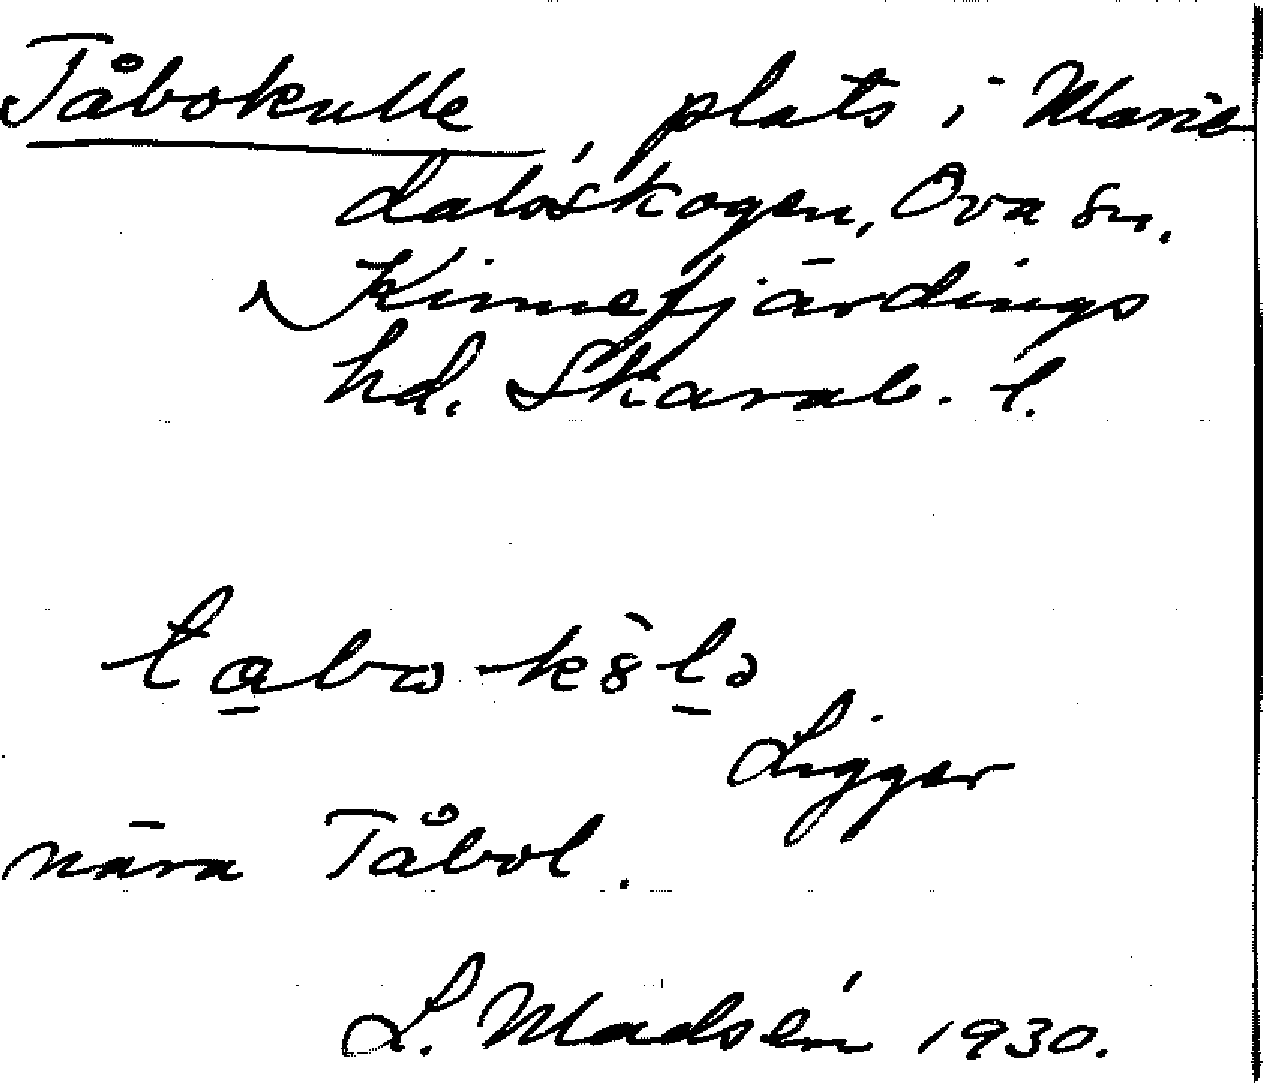 Tåbokulle, plats i Marie
dalsskogen, Ova sn.
Kinnefjärdings
hd. Skarab. l.
tabo-kèlə
Ligger
nära Tåbol.
L. Madsén 1930.